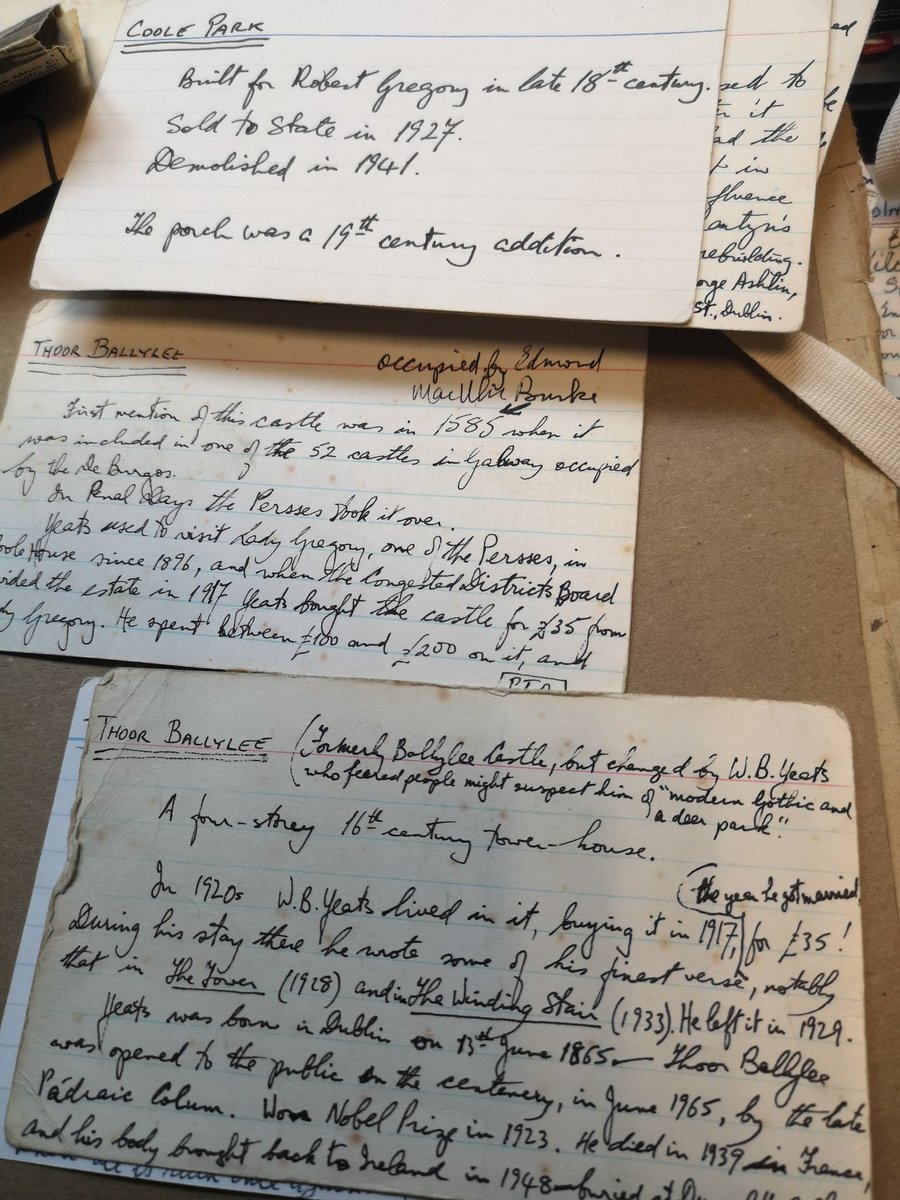 COOLE PARK
Built for Robert Gregory in late 18th century.
Sold to State in 1927.
Demolished in 1941.
The porch was a 19th century addition.
ed
sed to
it
ad the
in
fluence
rebuilding.
Ashlin,
St., Dublin.
THOOR BALLYLEE
occupied by Edmond
MacUlic Burke
First mention of this castle was in 1585 when it
was included in one of the 52 castles in Galway occupied
by the De Burgos.
In Penal Days the Persses took it over.
Yeats used to visit Lady Gregory, one of the Persses, in
oole House since 1896, and when the Congested Districts Board
vided the estate in 1917 Yeats bought the castle for £35 from
dy Gregory. He spent between £100 and £200 on it, and
PTO
THOOR BALLYLEE (Formerly Ballylee Castle, but changed by W.B. Yeats
who feared people might suspect him of "modern Gothic and
a deer park".
A four-storey 16th century tower-house.
(the year he got married
In 1920s W.B. Yeats lived in it, buying it in 1917, for £35!
During his stay there he wrote some of his finest verse, notably
that in The Tower (1928) and in The Winding Stair (1933). He left it in 1929.
Yeats was born in Dublin on 13th June 1865 – Thoor Ballylee
was opened to the public on the centenery, in June 1965, by the late
Pádraic Colum. Won Nobel Prize in 1923. He died in 1939 in France,
and his body brought back to Ireland in 1948 – buried at